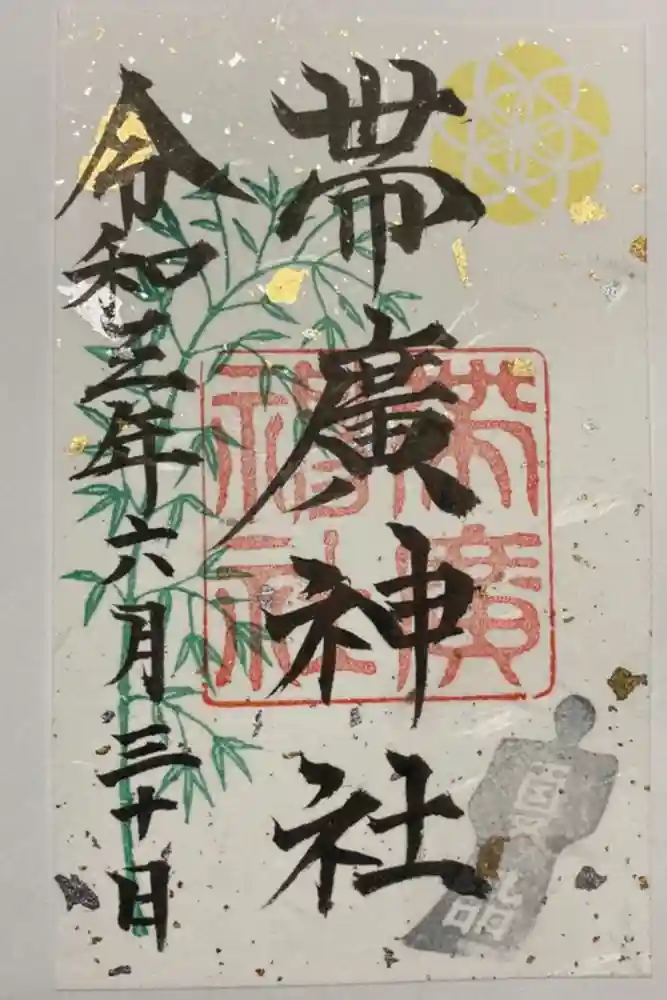 帯廣神社
帯廣
神社
令和三年六月三十日
夏詣